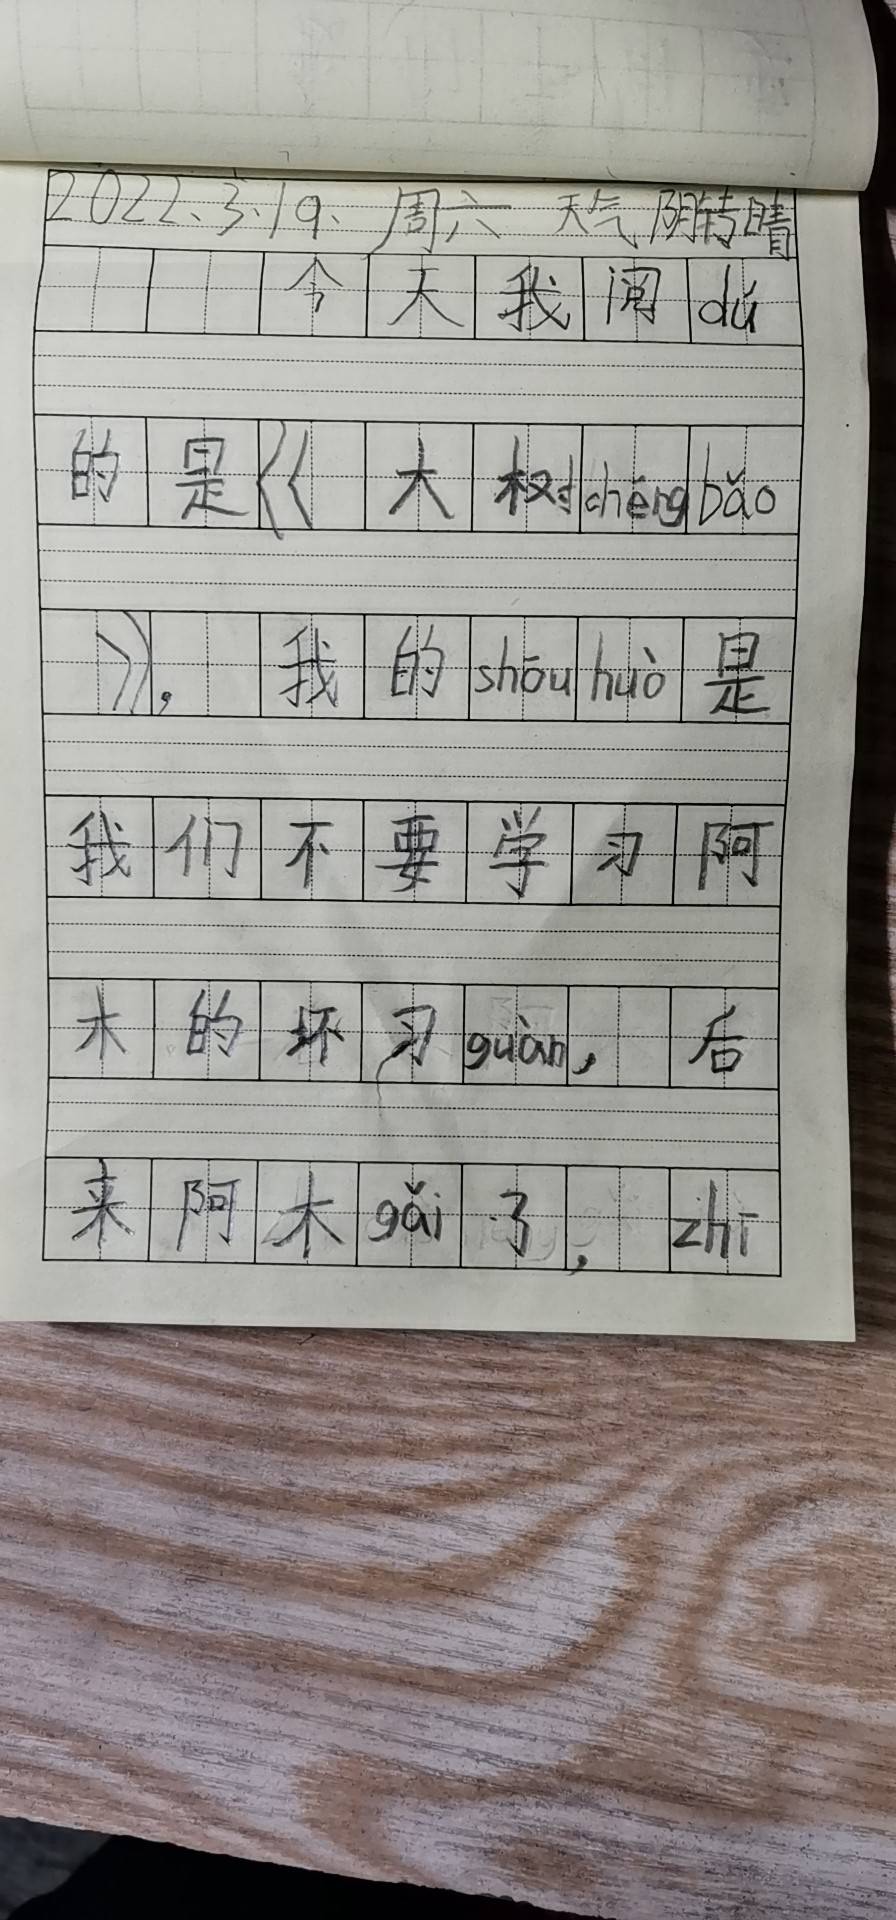 2022.3.19. 周六 天气 阴转晴
今天我阅dú
的是《大树chéngbǎo
》,我的shōuhuò是
我们不要学习阿
木的坏习guàn,后
来阿木gǎi了,zhī